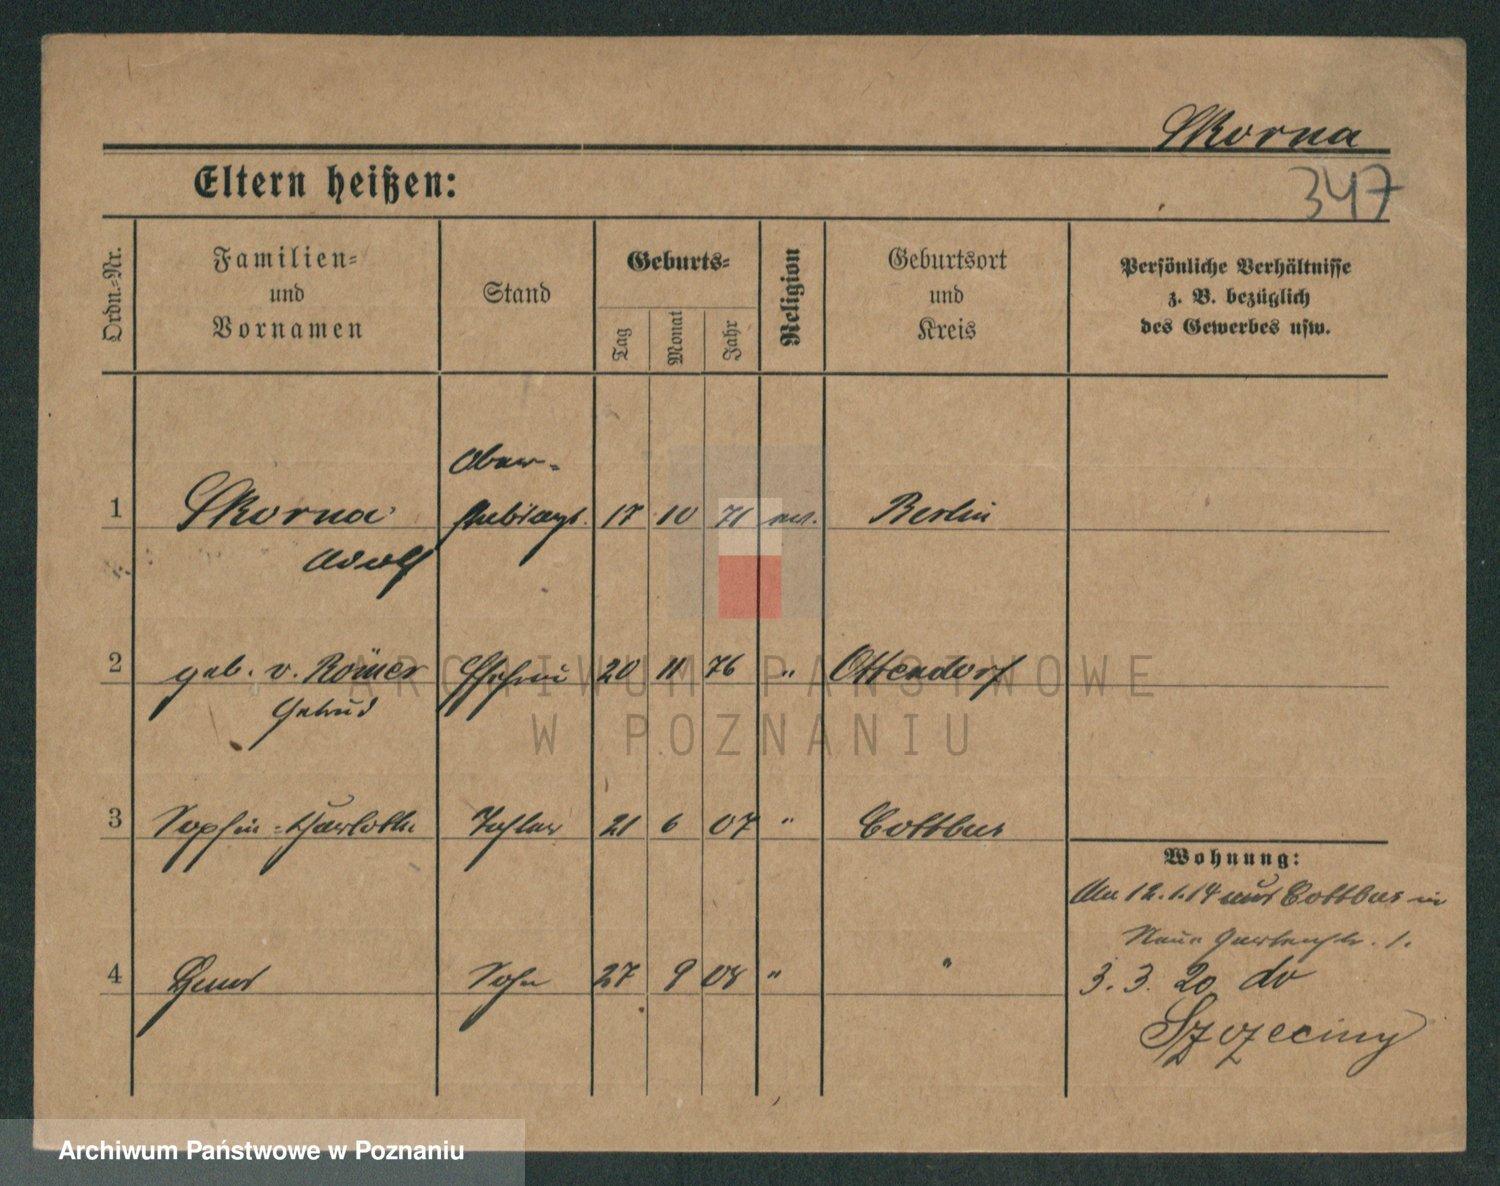 Skorna
347
Eltern heißen:
Ordn.-Nr.
Familien=
und
Vornamen
Stand
Geburts=
Tag
Monat
Jahr
Religion
Geburtsort
und
Kreis
Persönliche Verhältnisse
z. B. bezüglich
des Gewerbes usw.
Ober-
1 Skorna 17 10 71 Berlin
Adolf
2 geb. v. Römer Ehefrau 20 11 76 " Ottendorf
Gertrud
3 Sophie-Charlotte Tochter 21 6 07 " Cottbus
Wohnung:
Am 12.1.14 aus Cottbus in
Neue Gartenstr. 1.
4 Sohn 27 9 08 " "
3. 3. 20 do
Szczeciny
ARCHIWUM PAŃSTWOWE
W POZNANIU
Archiwum Państwowe w Poznaniu